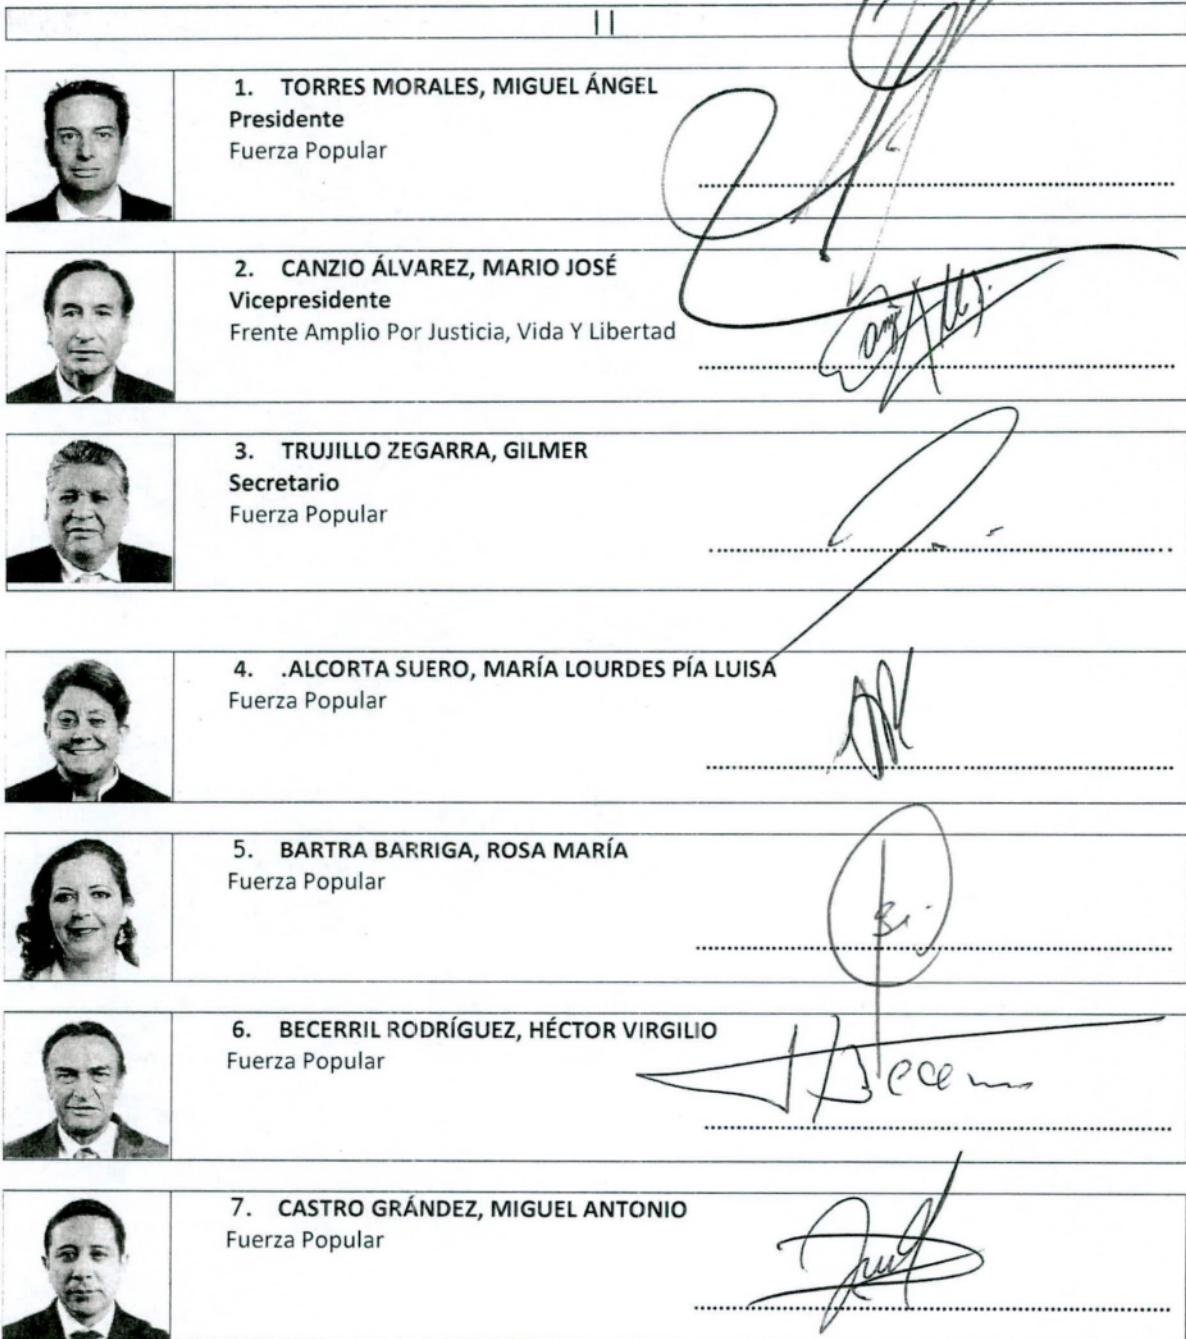 1. TORRES MORALES, MIGUEL ÁNGEL
Presidente
Fuerza Popular
2. CANZIO ÁLVAREZ, MARIO JOSÉ
Vicepresidente
Frente Amplio Por Justicia, Vida Y Libertad
3. TRUJILLO ZEGARRA, GILMER
Secretario
Fuerza Popular
4. .ALCORTA SUERO, MARÍA LOURDES PÍA LUISA
Fuerza Popular
5. BARTRA BARRIGA, ROSA MARÍA
Fuerza Popular
6. BECERRIL RODRÍGUEZ, HÉCTOR VIRGILIO
Fuerza Popular
7. CASTRO GRÁNDEZ, MIGUEL ANTONIO
Fuerza Popular